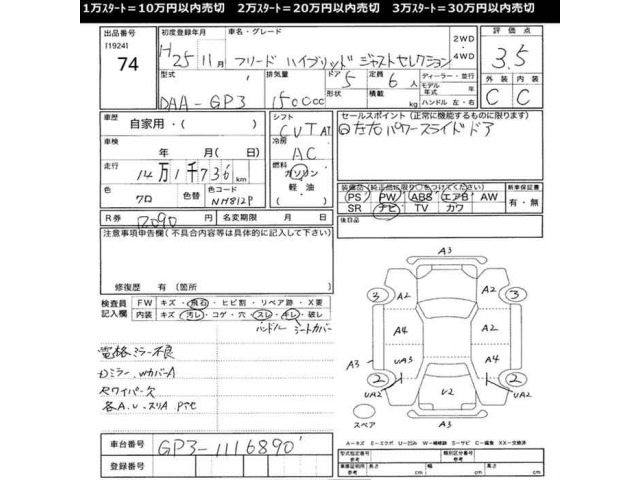 1万スタート=10万円以内売切　2万スタート=20万円以内売切　3万スタート=30万円以内売切
出品番号 [1924] 74
初度登録年月 H25 11月
車名・グレード フリード ハイブリッド ジャストセレクション
2WD・4WD
評価点 3.5
型式 DAA-GP3
排気量 1500cc
ドア 5 形状
定員 6人 積載 kg
ディーラー・並行
モデル年式 年
ハンドル 左・右
外装 C 内装 C
車歴 自家用・( )
シフト CVT AT
車検 年 月( 日)
冷房 AC
走行 14万1千736km
燃料 ガソリン 軽油
色 クロ 色コード NH812P
R券 12090円 名変期限 月 日
セールスポイント (正常に機能するものに限ります)
左右パワースライドドア
装備品 (純正品に限り○をつけてください)
PS PW ABS エアB AW
SR ナビ TV カワ
新車保証書 有・無
後日品
注意事項申告欄(不具合内容等は具体的に記入して下さい)
修復歴 有 (箇所 )
検査員記入欄
FW キズ・飛石・ヒビ割・リペア跡・X要
内装 キズ・汚レ・コゲ・穴・スレ・キレ・破レ
ハンドル シートカバー
電格ミラー不良
ミラー、Wカバー A
ワイパー欠
各A、U、スリA
車台番号 GP3-1116890
登録番号
A3
3 A2 A2 3
A4 A4
A3 UA3 A2
2 2
UA2 U2 UA2
スペア A3
A=キズ E=エクボ U=凹み W=補修跡 S=サビ C=腐食 XX=交換済
型式指定番号 参考 類別区分番号 参考
車検証明所 参考 長さ cm 幅 cm 高さ cm